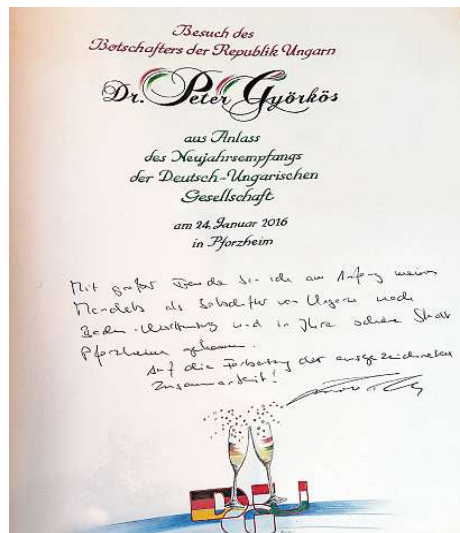 Besuch des
Botschafters der Republik Ungarn
Dr. Peter Györkös
aus Anlass
des Neujahrsempfangs
der Deutsch-Ungarischen
Gesellschaft
am 24. Januar 2016
in Pforzheim
Mit großer Freude bin ich am Anfang meines
Mandats als Botschafter von Ungarn nach
Baden-Württemberg und in Ihre schöne Stadt
Pforzheim gekommen.
Auf die Fortsetzung der ausgezeichneten
Zusammenarbeit!
DEU